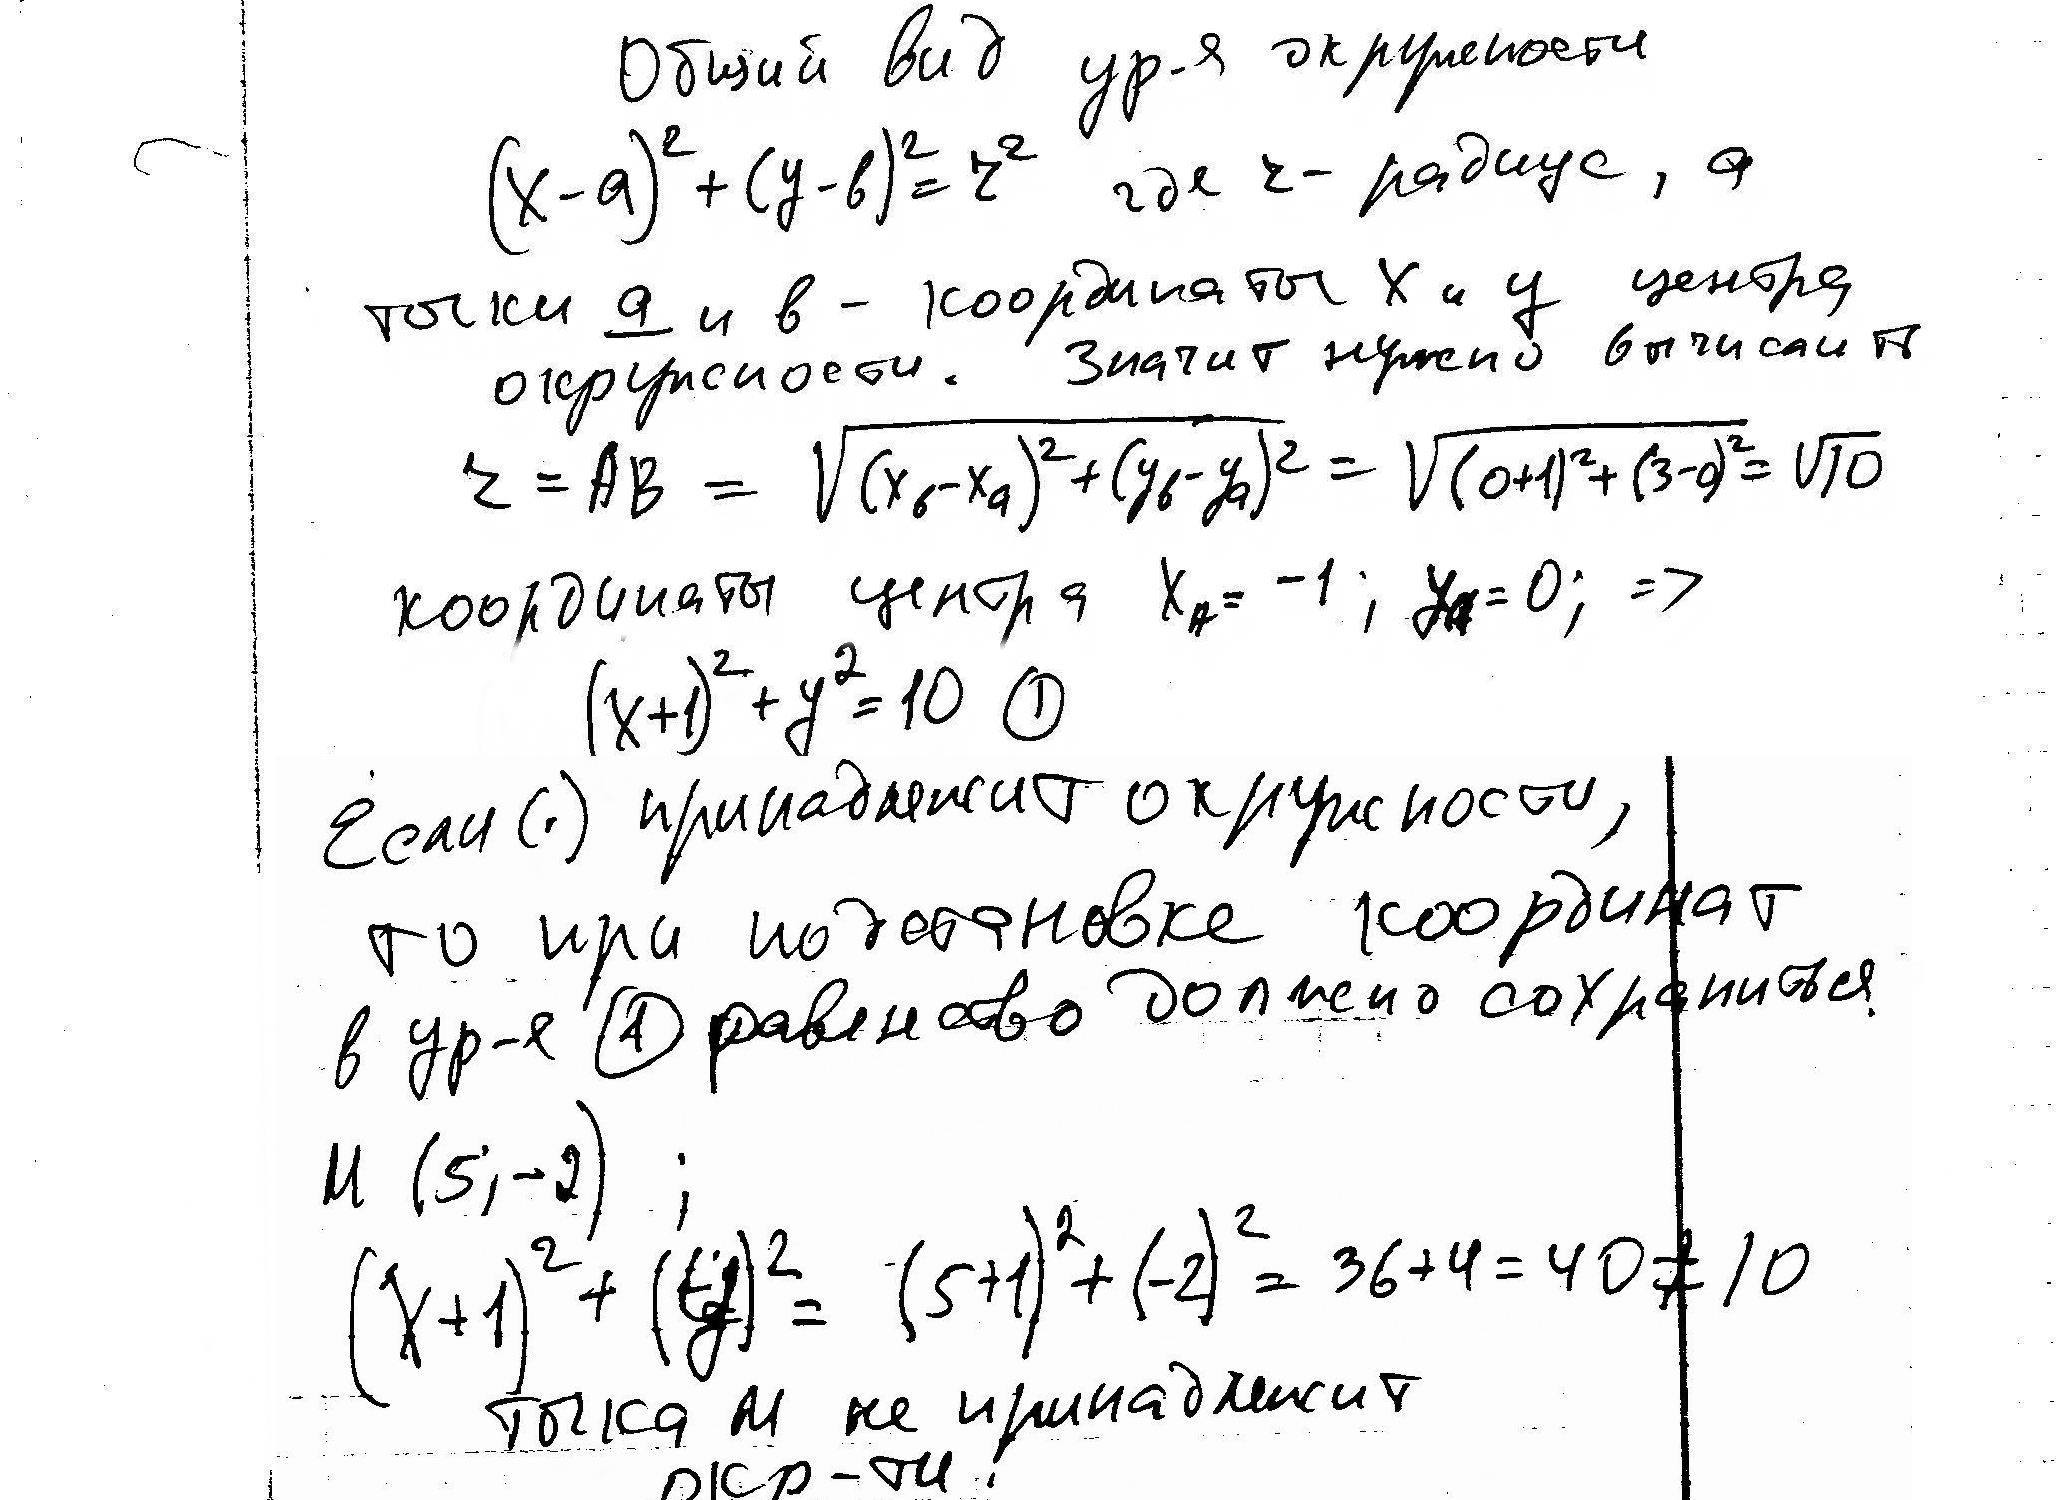 Общий вид ур-я окружности
(x-a)²+(y-в)²=r² где r- радиус, а
точки а и в - координаты X и y центра
окружности. Значит нужно вычислить
r = AB = √(xв-xа)²+(yв-yа)² = √(0+1)²+(3-0)² = √10
координаты центра Xᴀ= -1; yᴀ=0; =>
(x+1)²+y²=10 ①
Если (.) принадлежит окружности,
то при подстановке координат
в ур-я ① равенство должно сохраниться.
М (5;-2) ;
(x+1)²+(y)²= (5+1)²+(-2)²= 36+4=40≠10
точка М не принадлежит
окр-ти!